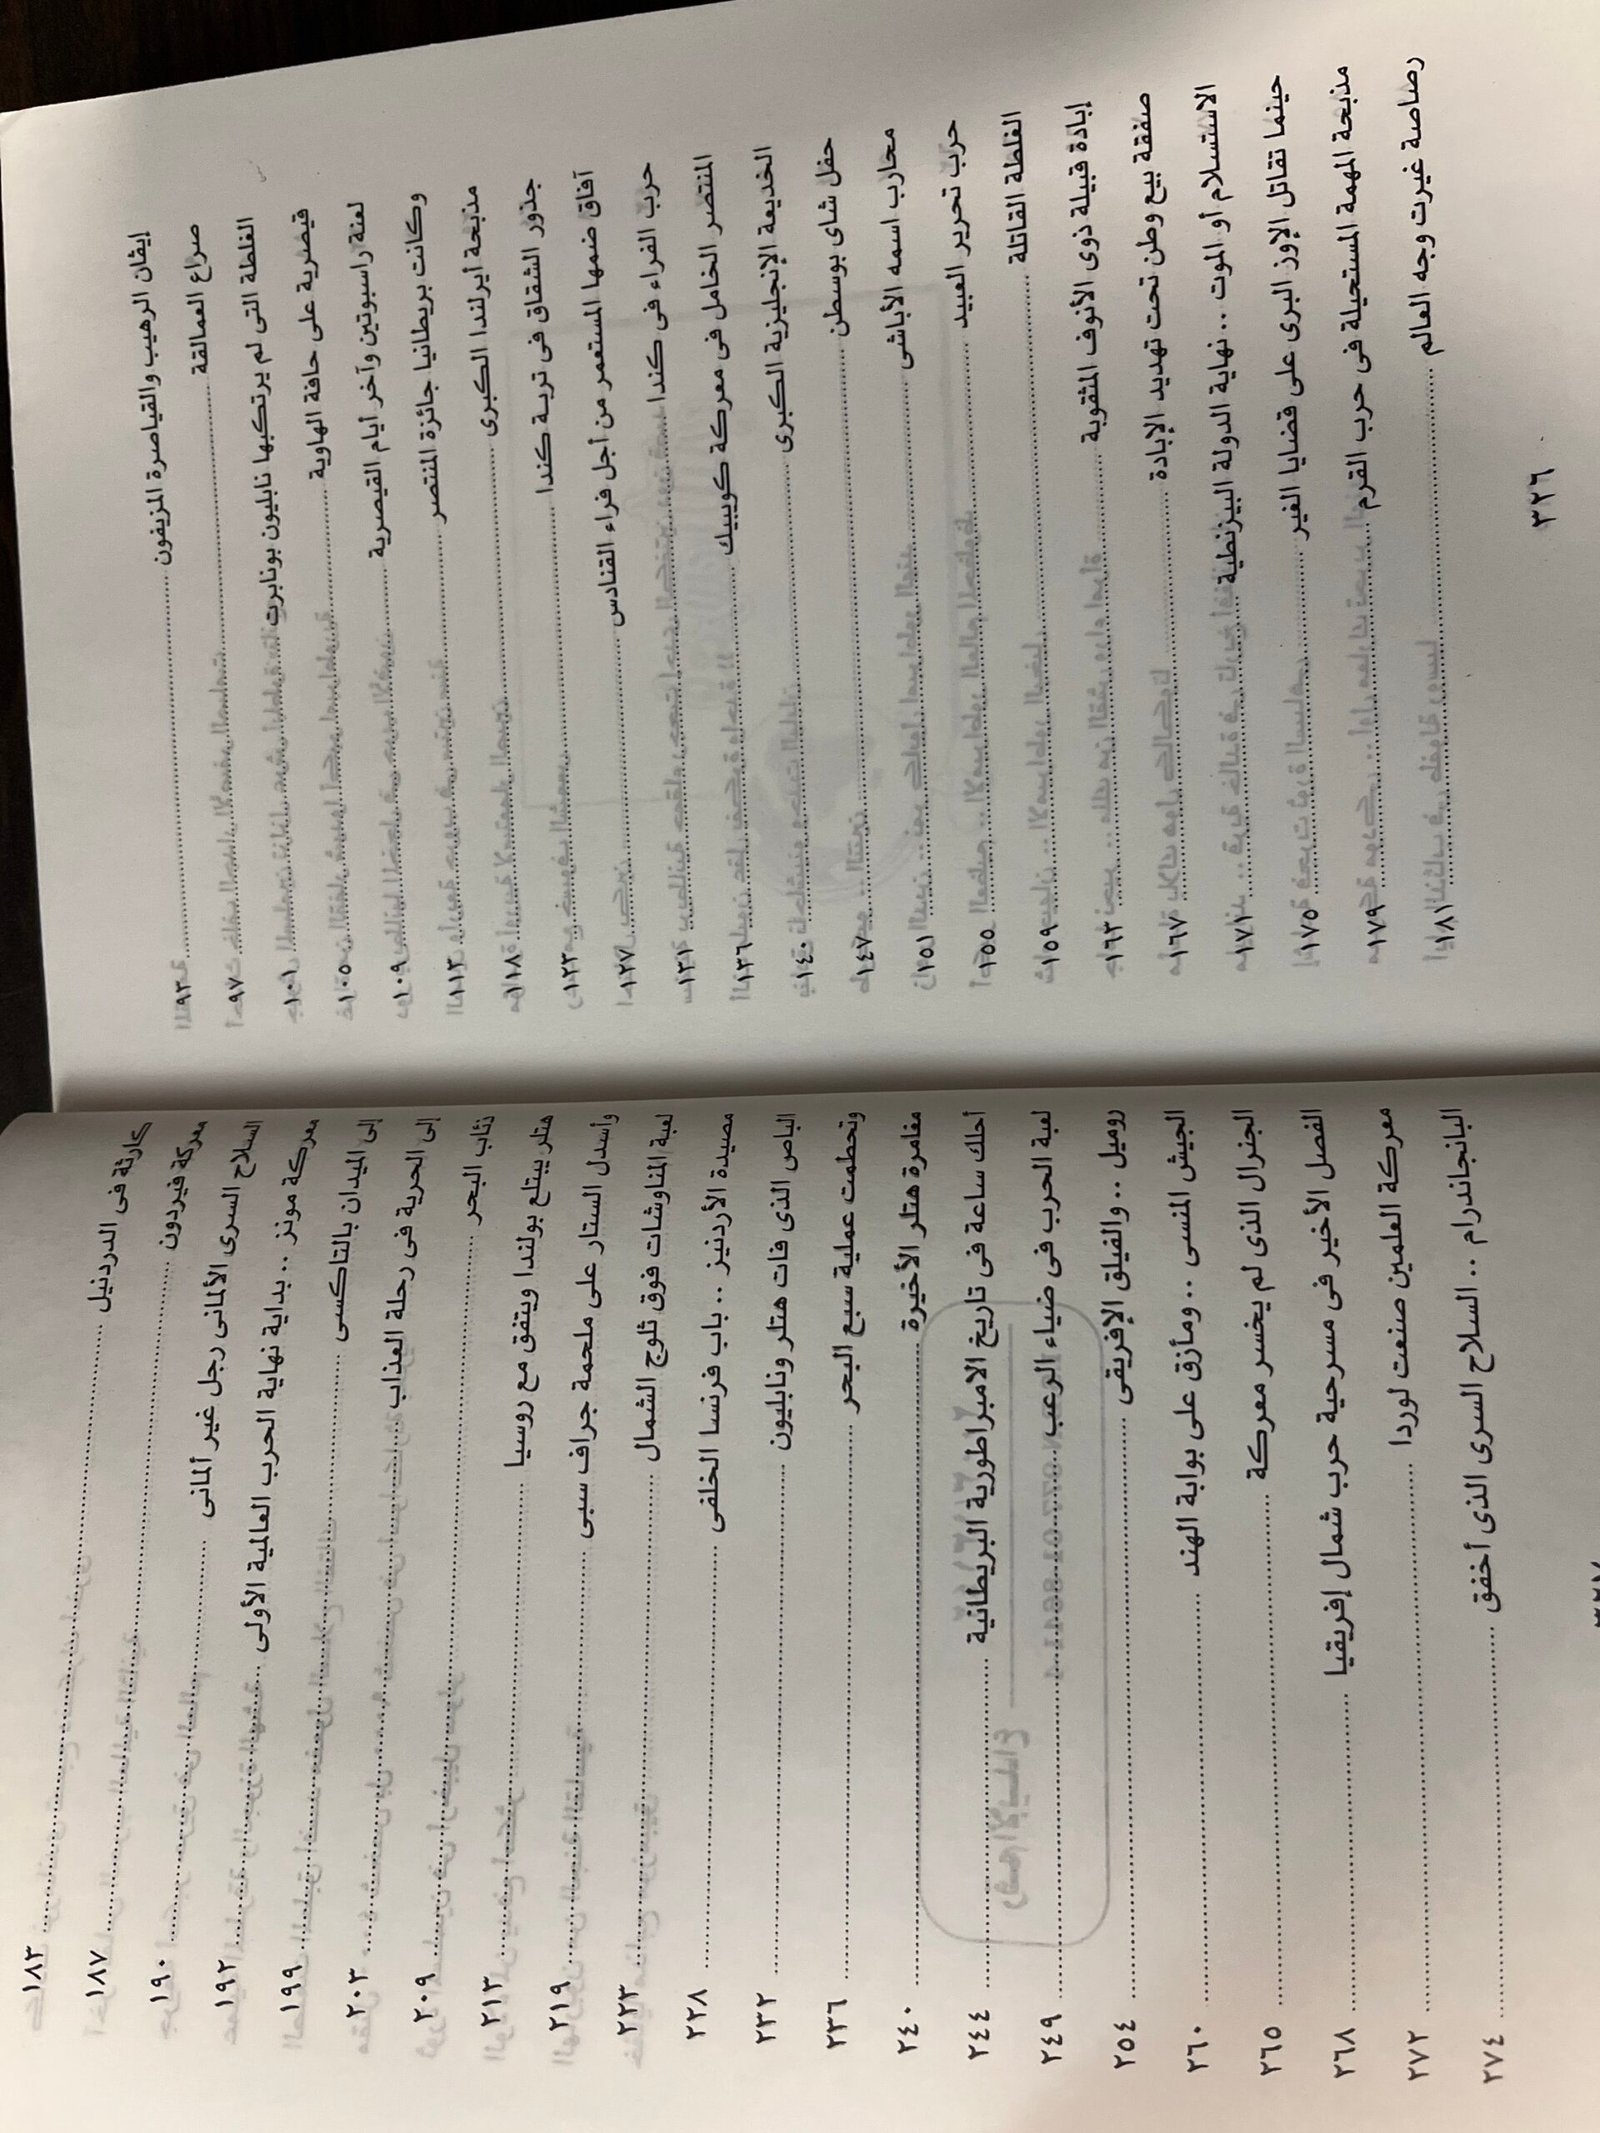 إيڤان الرهيب والقياصرة المزيفون ........ ٩٣
صراع العمالقة ........ ٩٧
الغلطة التى لم يرتكبها نابليون بونابرت ........ ١٠١
قيصرية على حافة الهاوية ........ ١٠٥
لعنة راسبوتين وآخر أيام القيصرية ........ ١٠٩
وكانت بريطانيا جائزة المنتصر ........ ١١٣
مذبحة أيرلندا الكبرى ........ ١١٨
جذور الشقاق فى تربة كندا ........ ١٢٣
آفاق ضمها المستعمر من أجل فراء القنادس ........ ١٢٧
حرب الفراء فى كندا ........ ١٣١
المنتصر الخامل فى معركة كويبيك ........ ١٣٦
الخديعة الإنجليزية الكبرى ........ ١٤٠
حفل شاى بوسطن ........ ١٤٧
محارب اسمه الأباشى ........ ١٥١
حرب تحرير العبيد ........ ١٥٥
الغلطة القاتلة ........ ١٥٩
إبادة قبيلة ذوى الأنوف المثقوبة ........ ١٦٣
صفقة بيع وطن تحت تهديد الإبادة ........ ١٦٧
الاستسلام أو الموت .. نهاية الدولة البيزنطية ........ ١٧١
حينما تقاتل الإوز البرى على قضايا الغير ........ ١٧٥
مذبحة المهمة المستحيلة فى حرب القرم ........ ١٧٩
رصاصة غيرت وجه العالم ........ ١٨١
٣٢٦
كارثة فى الدردنيل ........ ١٨٣
معركة فيردون ........ ١٨٧
السلاح السرى الألمانى رجل غير ألمانى ........ ١٩٠
معركة مونز .. بداية نهاية الحرب العالمية الأولى ........ ١٩٢
إلى الميدان بالتاكسى ........ ١٩٩
إلى الحرية فى رحلة العذاب ........ ٢٠٣
ذئاب البحر ........ ٢٠٩
هتلر يبتلع بولندا ويتفق مع روسيا ........ ٢١٣
وأسدل الستار على ملحمة جراف سبى ........ ٢١٩
لعبة المناوشات فوق ثلوج الشمال ........ ٢٢٣
مصيدة الأردنيز .. باب فرنسا الخلفى ........ ٢٢٨
الباص الذى فات هتلر ونابليون ........ ٢٣٢
وتحطمت عملية سبع البحر ........ ٢٣٦
مغامرة هتلر الأخيرة ........ ٢٤٠
أحلك ساعة فى تاريخ الامبراطورية البريطانية ........ ٢٤٤
لعبة الحرب فى ضياء الرعب ........ ٢٤٩
روميل .. والفيلق الإفريقى ........ ٢٥٤
الجيش المنسى .. ومأزق على بوابة الهند ........ ٢٦٠
الجنرال الذى لم يخسر معركة ........ ٢٦٥
الفصل الأخير فى مسرحية حرب شمال إفريقيا ........ ٢٦٨
معركة العلمين صنعت لوردا ........ ٢٧٢
البانجاندرام .. السلاح السرى الذى أخفق ........ ٢٧٤